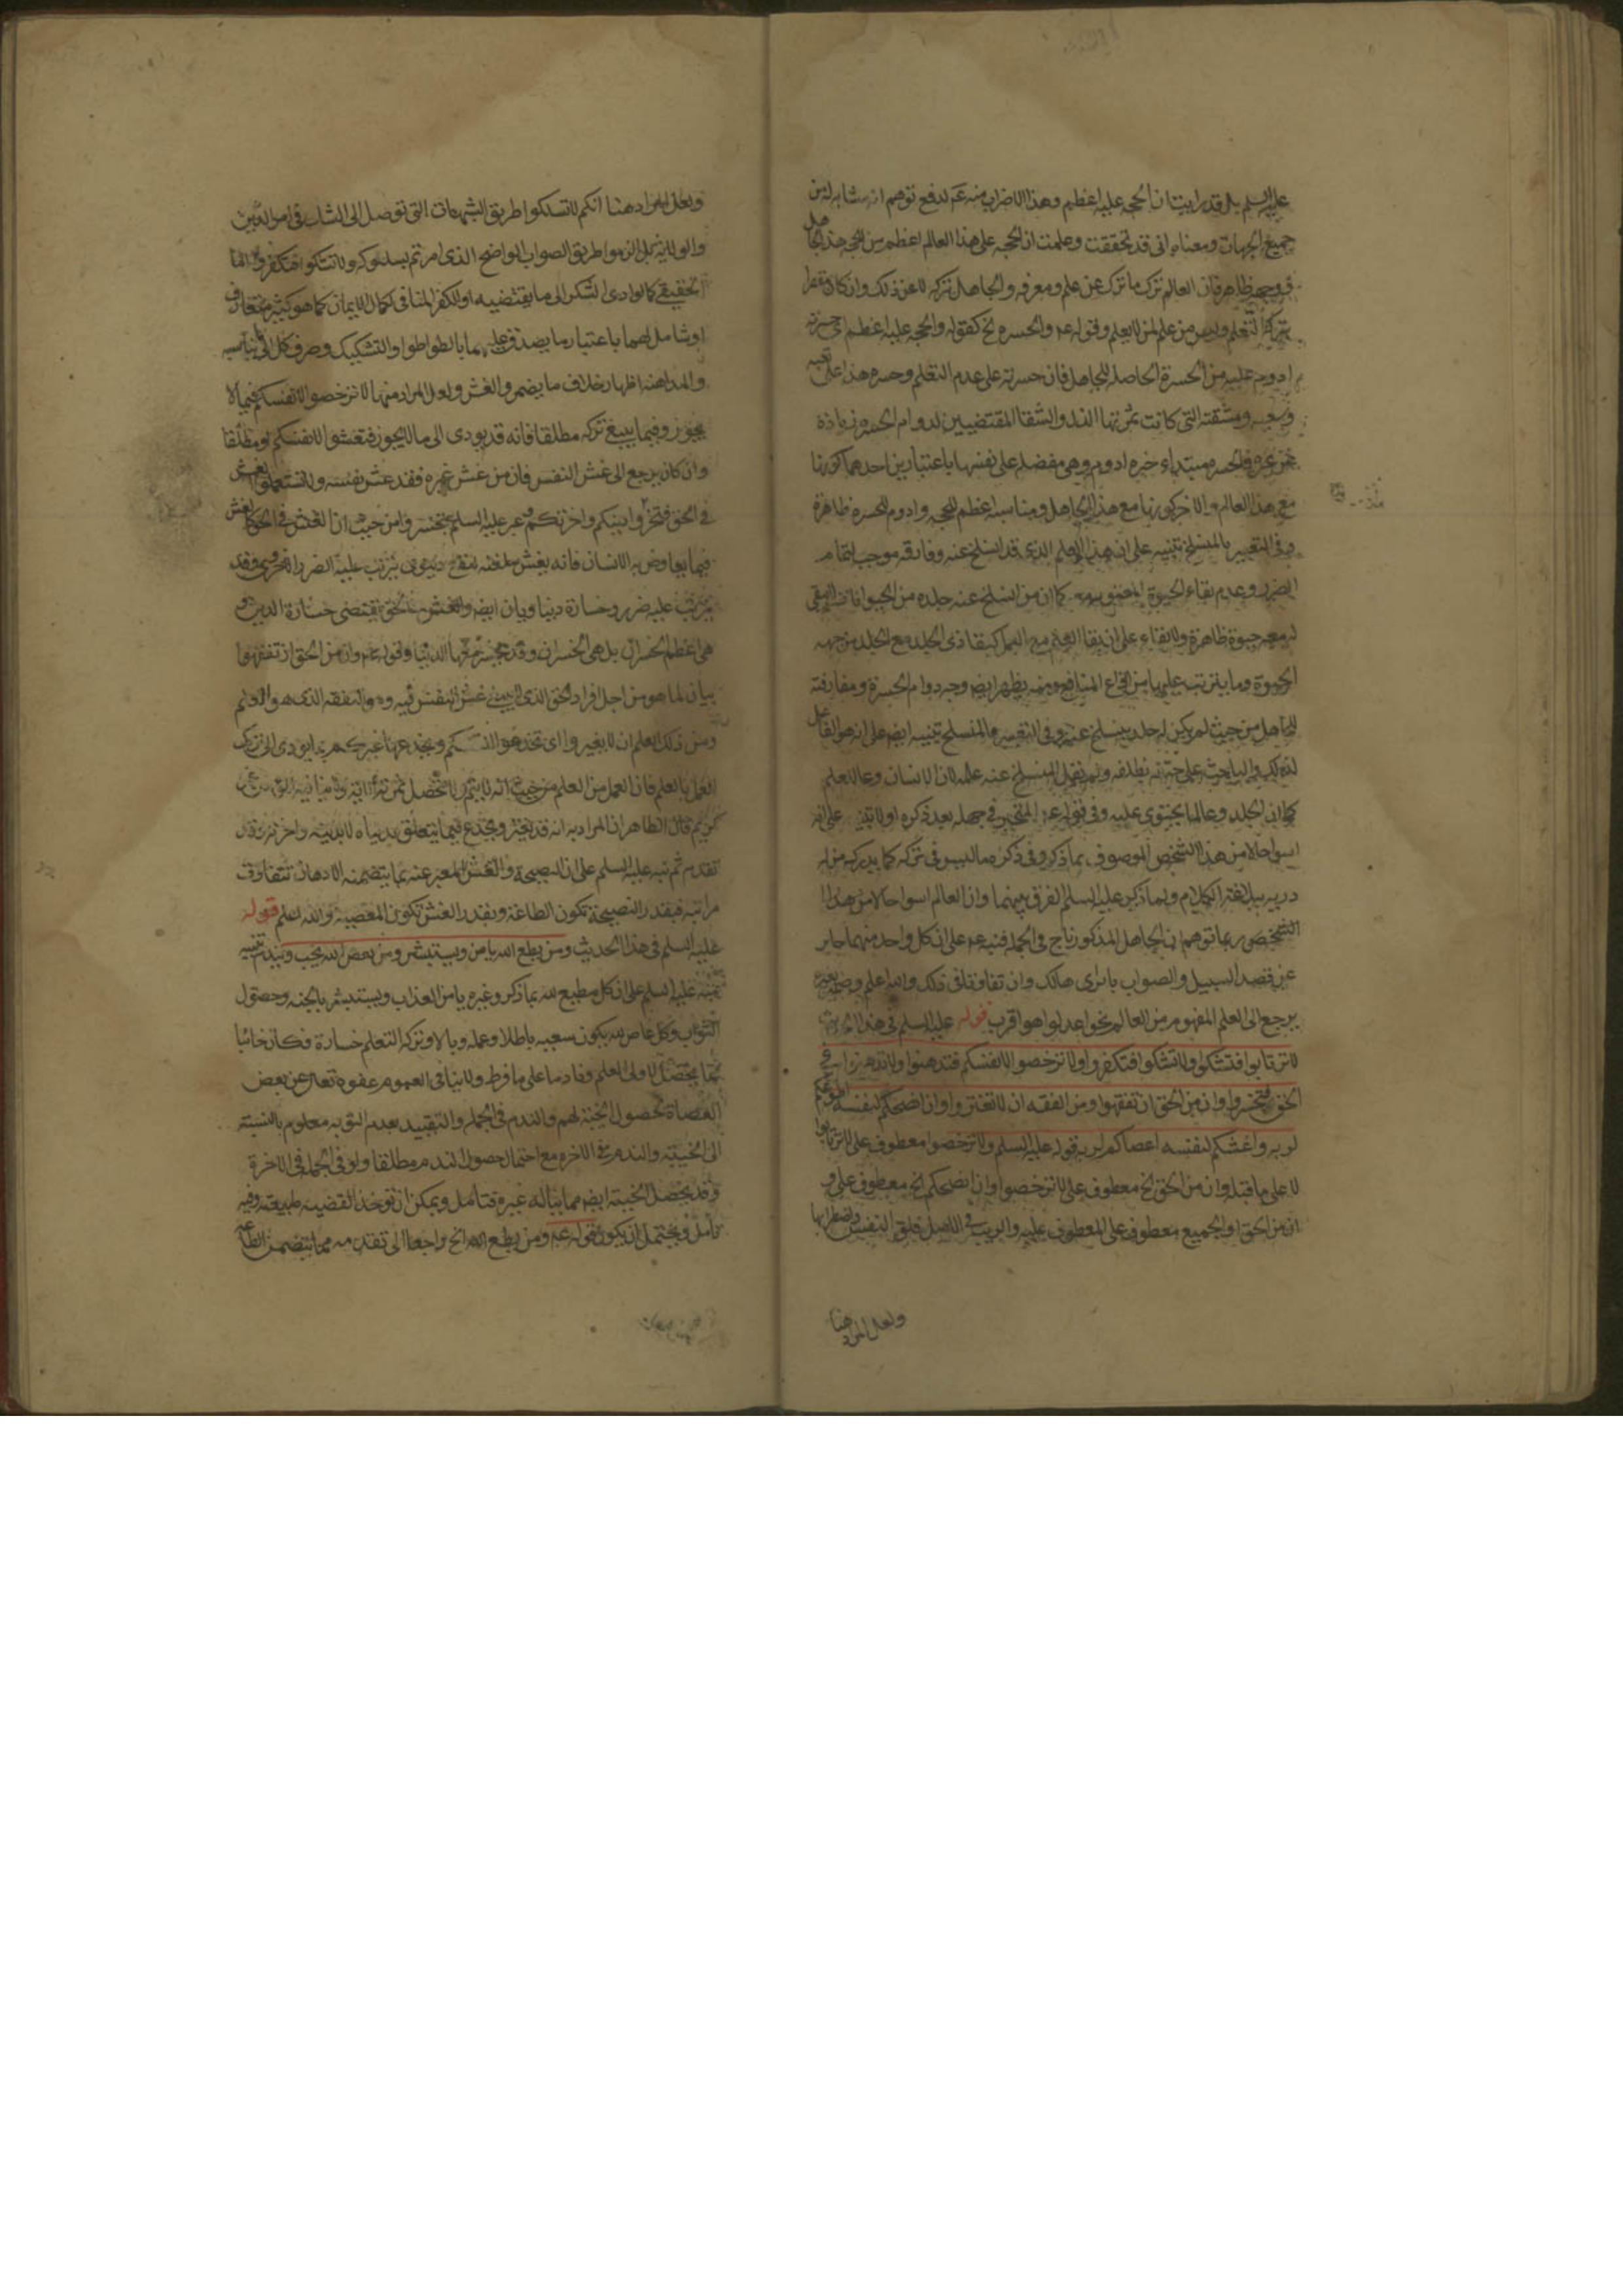 عليه السلم بل قد رايت ان الحجه عليه اعظم وهذا الاضراب منه عم لدفع توهم انه مشابه له من
جميع الجهات ومعناه انى قد تحققت وعلمت ان الحجه على هذا العالم اعظم من الحجه هذا الجاهل
ووجهه ظاهر فان العالم ترك ما ترك عن علم ومعرفه والجاهل تركه لا عن ذلك وان كان مقصرا
بتركه التعلم وليس من علم كمن لا يعلم وقوله عم والحسره الخ كقوله والحجه عليه اعظم اى حسرته
ادوم عليه من الحسرة الحاصله للجاهل فان حسرته على عدم التعلم وحسره هذا على تعبه
وسعيه ومشقته التى كانت ثمرتها الندم والشقا المقتضيين لدوام الحسره زياده
عن غيره فالحسره مبتداء خبره ادوم وهى مفضله على نفسها باعتبارين احدهما كونها
مع هذا العالم والاخر كونها مع هذا الجاهل ومناسبه اعظم للحجه وادوم للحسره ظاهرة
وفى التعبير بالمنسلخ تنبيه على ان هذا العلم الذى قد انسلخ عنه وفارقه موجب لتمام
الضرر وعدم بقاء الحيوة المعنويه كما ان من انسلخ عنه جلده من الحيوانات لا يبقى
له معه حيوة ظاهرة ولا بقاء على ان بقا العلم مع العمل كبقا ذى الجلد مع الجلد من جهه
الحيوة وما يترتب عليها من انواع المنافع ومنه يظهر ايضه وجه دوام الحسرة ومفارقته
للجاهل من حيث لم يكن له جلد ينسلخ عنه وفى التعبير بالمنسلخ تنبيه ايضه على انه هو الفاعل
لذلك والباحث على حتفه بظلفه ولم يقل المنسلخ عنه علمه لان الانسان وعا للعلم
كما ان الجلد وعا لما يحتوى عليه وفى قوله عم المتحير فى جهله بعد ذكره اولا تنبيه على انه
اسوا حالا من هذا الشخص الموصوف بما ذكر وفى ذكره ما ليس فى تركه كما يدركه من له
دربه ببلاغة الكلام ولما ذكر عليه السلم الفرق بينهما وان العالم اسوا حالا من هذا
الشخص ربما توهم ان الجاهل المذكور ناج فى الجمله فنبه عم على ان كل واحد منهما حاير
عن قصد السبيل والصواب باير اى هالك وان تفاوتا فى ذلك والله اعلم وضمير عنه
يرجع الى العلم المفهوم من العالم نحو اعدلوا هو اقرب قوله عليه السلم فى هذا الحديث
لا ترتابوا فتشكوا ولا تشكوا فتكفروا ولا ترخصوا لانفسكم فتدهنوا ولا تدهنوا فى
الحق فتخسروا وان من الحق ان تفقهوا ومن الفقه ان لا تغتروا وان انصحكم لنفسه اطوعكم
لربه واغشكم لنفسه اعصاكم لربه قوله عليه السلم ولا ترخصوا معطوف على لا ترتابوا
لا على ما قبله وان من الحق الخ معطوف على لا ترخصوا وان انصحكم الخ معطوف على و
ان من الحق او الجميع معطوف على المعطوف عليه والريب فى الاصل قلق النفس واضطرابها
ولعل المراد هنا
ولعل المراد هنا انكم لا تسلكوا طريق الشبهات التى توصل الى الشك فى امر الدين
والولايه بل الزموا طريق الصواب الواضح الذى امرتم بسلوكه ولا تشكوا فتكفروا اما
الحقيقى كما لو ادى الشك الى ما يقتضيه او الكفر المنافى لكمال الايمان كما هو كثير متعارف
او شامل لهما باعتبار ما يصدق عليهما بالتواطوا والتشكيك وصرف كل الى ما يناسبه
والمداهنه اظهار خلاف ما يضمر والغش ولعل المراد منها لا ترخصوا لانفسكم فيما لا
يجوز وفيما ينبغى تركه مطلقا فانه قد يودى الى ما لا يجوز فتغشوا لانفسكم او مطلقا
وان كان يرجع الى غش النفس فان من غش غيره فقد غش نفسه ولا تستعملوا الغش
فى الحق فتخسروا دينكم واخرتكم وعبر عليه السلم بتخسروا من حيث ان الغش فى الحق كالغش
فيما يعاوض به الانسان فانه يغش لمنفعه لنفع دنيوى يترتب عليه الضرر الاخروى وقد
يترتب عليه ضرر وخسارة دنياويان ايضه والغش فى الحق يقتضى خسارة الدين و
هى اعظم الخسران بل هى الخسران وقد تجر معها الدنيا وقوله عم وان من الحق ان تفقهوا
بيان لما هو من اجل افراد الحق الذى ينبغى غش النفس فيه وهو التفقه الذى هو العلم
ومن ذلك العلم ان لا يغتروا اى تخدعوا انفسكم ويخدعها غيركم بما يودى الى ترك
العمل بالعلم فان العمل من العلم من حيث انه لا يتم ولا تحصل ثمرته الا به ولا ينافيه المومن غر
كريم فان الظاهر ان المراد به انه قد يغتر ويخدع فيما يتعلق بدنياه لا بدينه واخرته وقد
تقدم ثم نبه عليه السلم على ان النصيحة والغش المعبر عنه بما يتضمنه الادهان تتفاوت
مراتبه فبقدر النصيحة تكون الطاعة وبقدر الغش تكون المعصية والله اعلم قوله
عليه السلم فى هذا الحديث ومن يطع الله يامن ويستبشر ومن يعص الله يخب ويندم تنبيه
منه عليه السلم على ان كل مطيع لله بما ذكر وغيره يامن العذاب ويستبشر بالجنه وحصول
الثواب وكل عاص لله يكون سعيه باطلا وعمله وبالا وتركه التعلم خسارة فكان خائبا
مما يحصل لاولى العلم ونادما على ما فرط ولا ينافى العموم عفوه تعالى عن بعض
العصاة لحصول الخيبة لهم والندم فى الجمله والتقييد بعدم التوبه معلوم بالنسبة
الى الخيبة والندم فى الاخره مع احتمال حصول الندم مطلقا ولو فى الجمله فى الاخرة
وقد يحصل الخيبة ايضه مما يناله غيره فتامل ويمكن ان توخذ القضيه طبيعيه وفيه
تامل ويحتمل ان يكون قوله عم ومن يطع الله الخ راجعا الى تقدمه مما يتضمن الطاعه